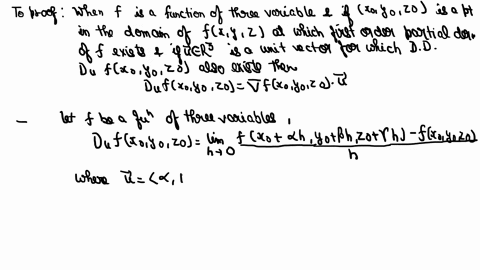 To proof: When f is a function of three variable & if (x0, y0, z0) is a pt
in the domain of f(x, y, z) at which first order partial der.
of f exists & if u⃗∈R³ is a unit vector for which D.D.
Du f(x0, y0, z0) also exists then
Du f(x0, y0, z0) = ∇f(x0, y0, z0)·u⃗
— let f be a fuⁿ of three variables,
Du f(x0, y0, z0) = lim h→0 f(x0 + αh, y0+βh, z0+γh) - f(x0, y0, z0) / h
where u⃗ = <α, 1